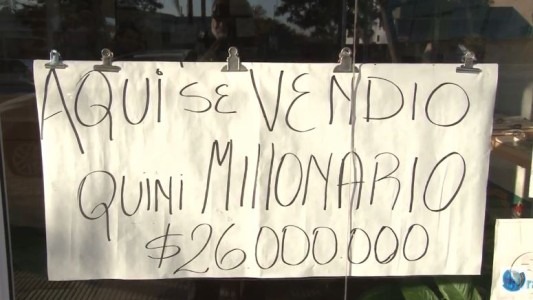 AQUI SE VENDIO
QUINI MILLONARIO
$26000.000